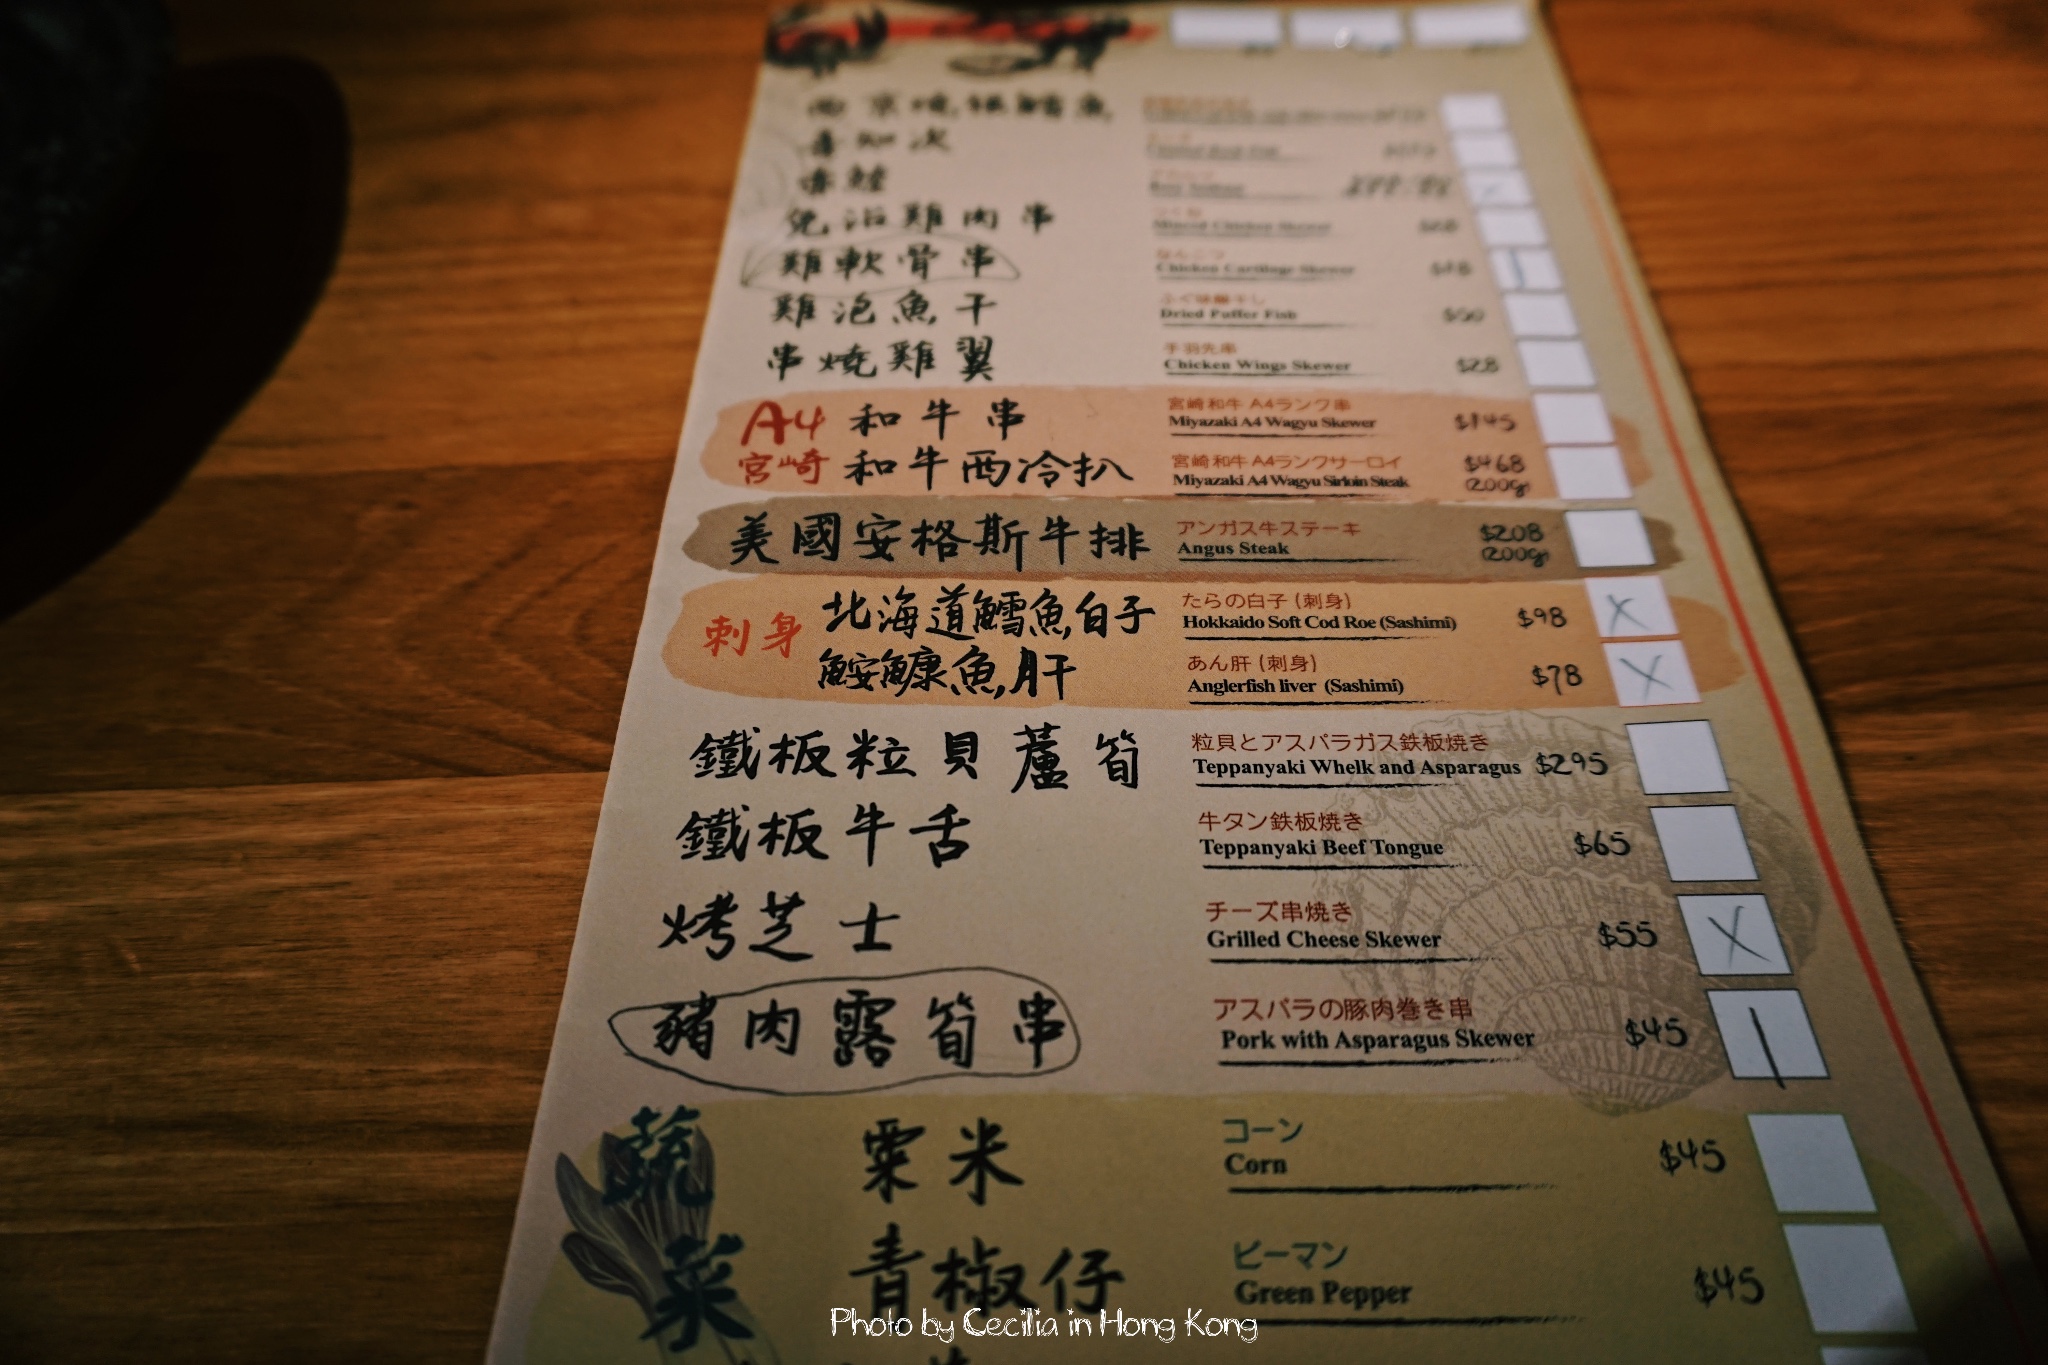 喜知次
赤鮭
免治雞肉串
Minced Chicken Skewer
雞軟骨串
なんこつ
Chicken Cartilage Skewer
雞泡魚干
ふぐ味醂干し
Dried Puffer Fish
$50
串燒雞翼
手羽先串
Chicken Wings Skewer
$28
A4 和牛串
宮崎和牛 A4ランク串
Miyazaki A4 Wagyu Skewer
$145
宮崎 和牛西冷扒
宮崎和牛 A4ランクサーロイ
Miyazaki A4 Wagyu Sirloin Steak
$468
(200g)
美國安格斯牛排
アンガス牛ステーキ
Angus Steak
$208
(200g)
刺身
北海道鱈魚白子
たらの白子 (刺身)
Hokkaido Soft Cod Roe (Sashimi)
$98
X
鮟鱇魚肝
あん肝 (刺身)
Anglerfish liver (Sashimi)
$78
X
鐵板粒貝蘆筍
粒貝とアスパラガス鉄板焼き
Teppanyaki Whelk and Asparagus
$295
鐵板牛舌
牛タン鉄板焼き
Teppanyaki Beef Tongue
$65
烤芝士
チーズ串焼き
Grilled Cheese Skewer
$55
X
豬肉露筍串
アスパラの豚肉巻き串
Pork with Asparagus Skewer
$45
蔬菜
粟米
コーン
Corn
$45
青椒仔
ピーマン
Green Pepper
$45
Photo by Cecilia in Hong Kong